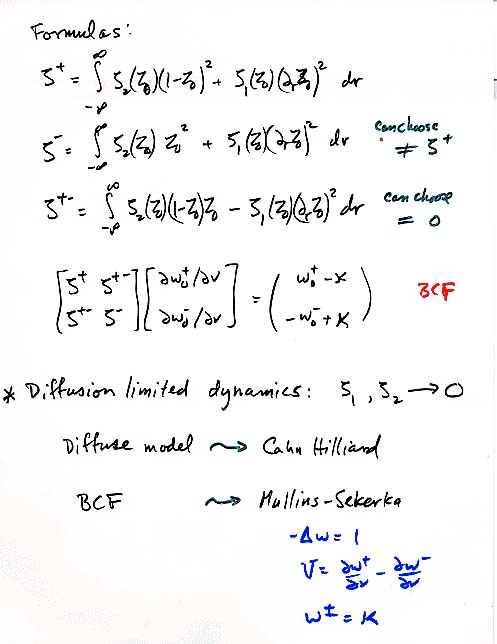 Formulas:
ζ⁺ = ∫_{-∞}^{∞} ζ₂(z₀)(1-z₀)² + ζ₁(z₀)(∂ᵣz₀)² dr
ζ⁻ = ∫_{-∞}^{∞} ζ₂(z₀) z₀² + ζ₁(z₀)(∂ᵣz₀)² dr can choose ≠ ζ⁺
ζ⁺⁻ = ∫_{-∞}^{∞} ζ₂(z₀)(1-z₀)z₀ - ζ₁(z₀)(∂ᵣz₀)² dr can choose = 0
[ζ⁺ ζ⁺⁻] [∂w₀⁺/∂ν] = (w₀⁺ - κ)
[ζ⁺⁻ ζ⁻] [∂w₀⁻/∂ν] (-w₀⁻ + κ) BCF
* Diffusion limited dynamics: ζ₁, ζ₂ → 0
Diffuse model ⇝ Cahn Hilliard
BCF ⇝ Mullins-Sekerka
-Δw = 1
V = ∂w⁺/∂ν - ∂w⁻/∂ν
w^± = κ